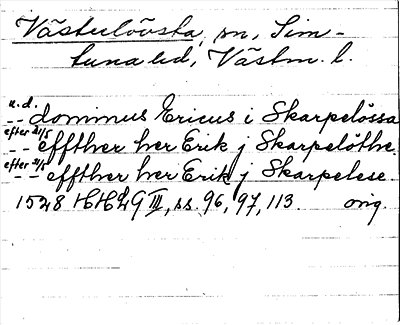 Västerlövsta, sn, Sim-
tuna hd, Västm. l.
u.d.
-- dominus Ericus i Skarpelössa
efter 21/5
-- effther her Erik j Skarpelöthe.
efter 21/5
-- effther her Erik j Skarpelese.
1528 HH2G III, ss. 96, 97, 113. orig.